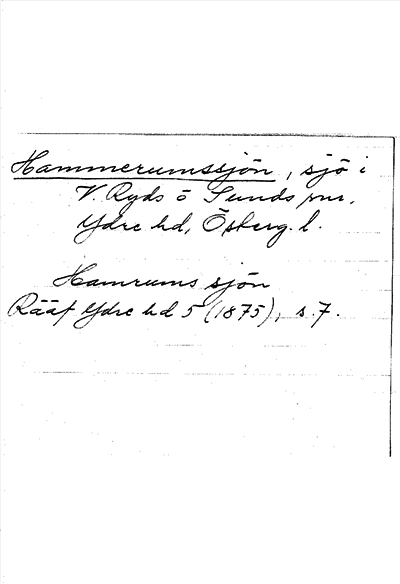 Hammerumssjön, sjö i
V. Ryds o Sunds snr,
Ydre hd, Österg. l.
Hamrums sjön
Rääf Ydre hd 5 (1875), s. 7.